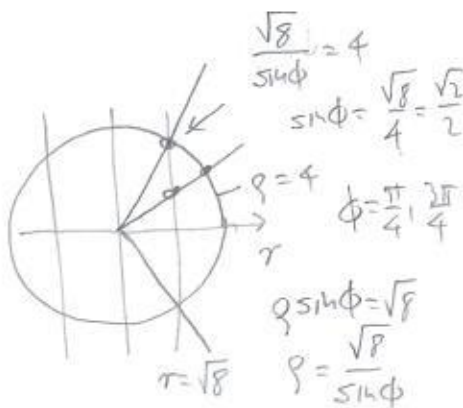 √8/sinϕ = 4
sinϕ = √8/4 = √2/2
ρ = 4
ϕ = π/4, 3π/4
r
ρ sinϕ = √8
r = √8
ρ = √8/sinϕ